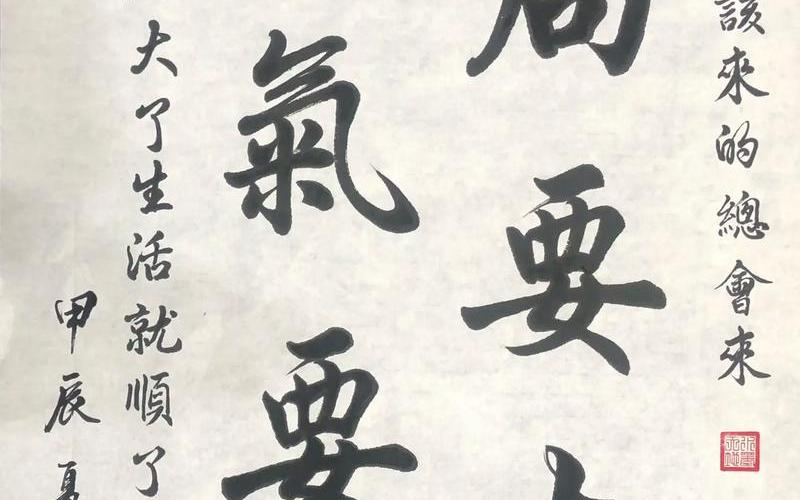 該來的總會來
局要
氣要
大了生活就順了
甲辰夏